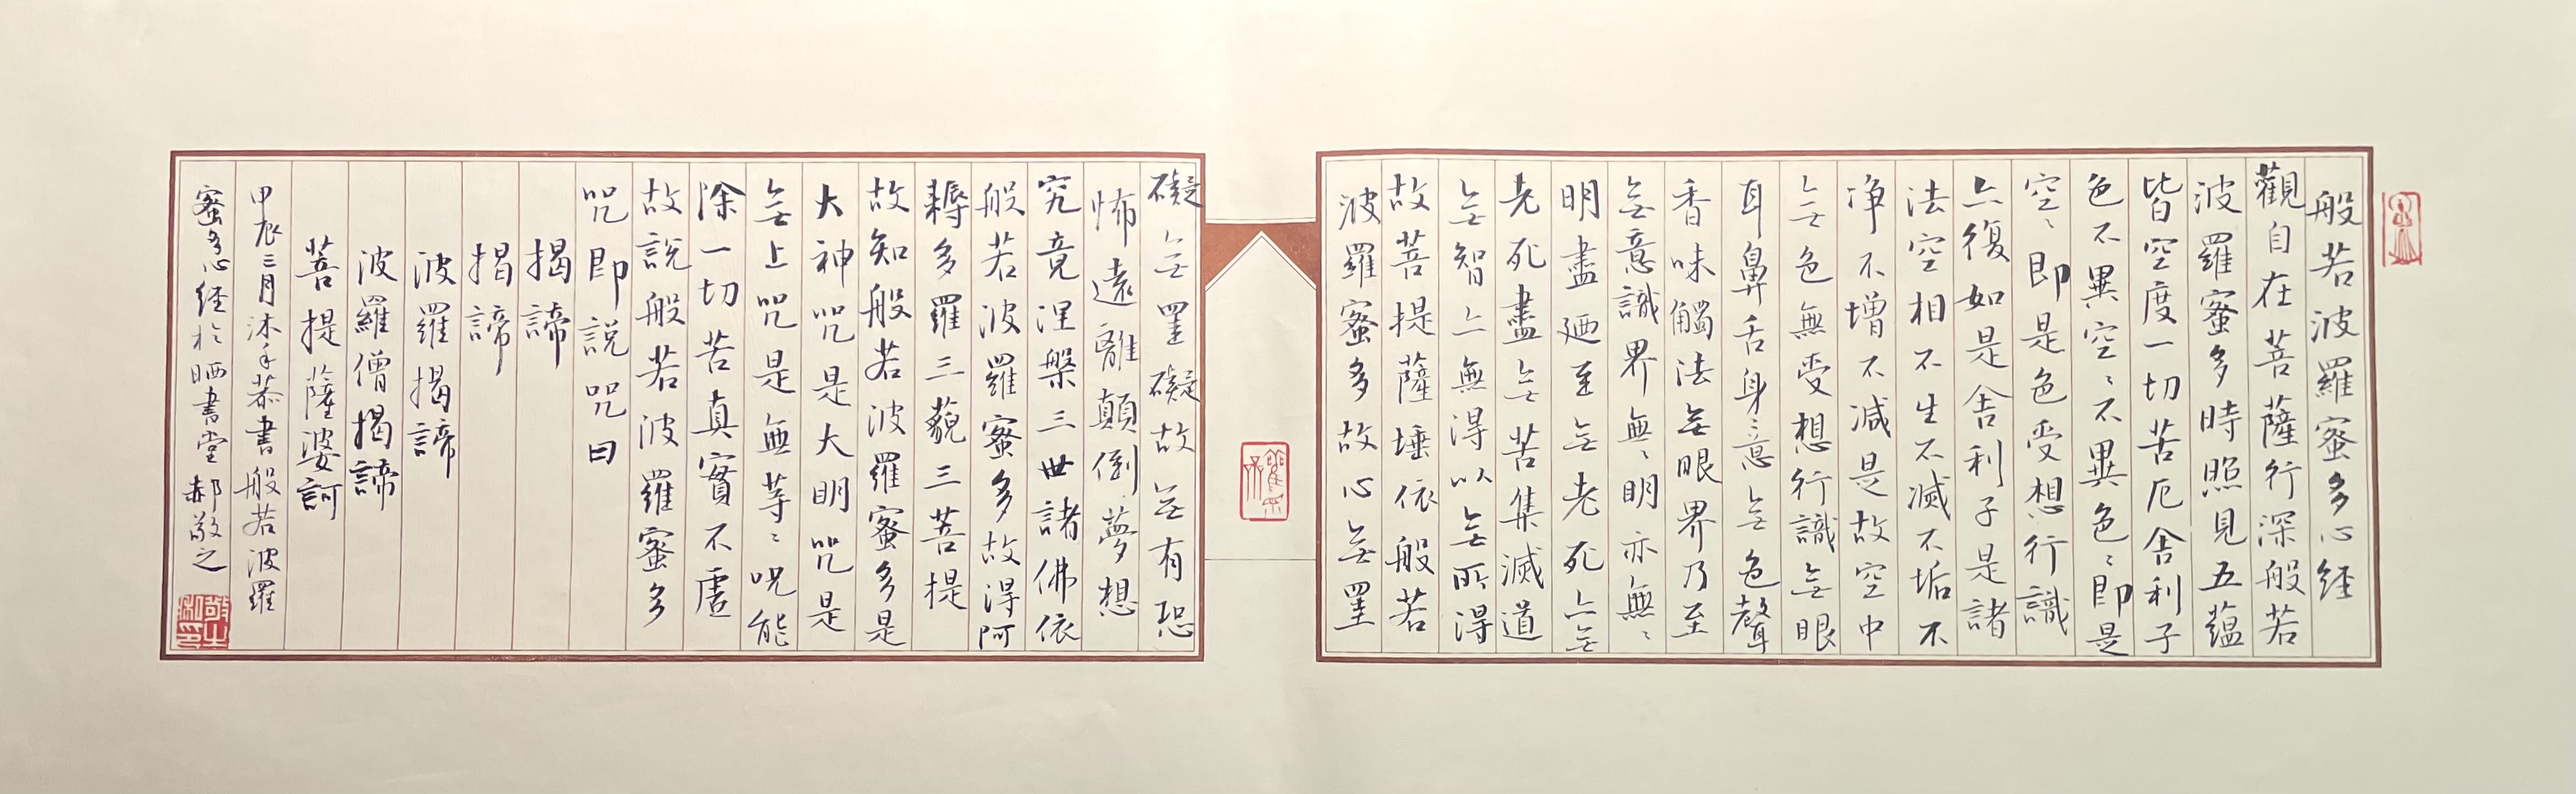 般若波羅蜜多心经
觀自在菩薩行深般若
波羅蜜多時照見五蕴
皆空度一切苦厄舍利子
色不異空〻不異色〻即是
空〻即是色受想行識
亦復如是舍利子是諸
法空相不生不滅不垢不
净不增不减是故空中
无色無受想行識无眼
耳鼻舌身意无色聲
香味觸法无眼界乃至
无意識界無〻明亦無〻
明盡廼至无老死亦无
老死盡无苦集滅道
无智亦無得以无所得
故菩提薩埵依般若
波羅蜜多故心无罣
礙无罣礙故无有恐
怖遠離顛倒夢想
究竟涅槃三世諸佛依
般若波羅蜜多故得阿
耨多羅三藐三菩提
故知般若波羅蜜多是
大神咒是大明咒是
无上咒是無等〻咒能
除一切苦真實不虛
故說般若波羅蜜多
咒即說咒曰
揭諦
揭諦
波羅揭諦
波羅僧揭諦
菩提薩婆訶
甲辰三月沐手恭書般若波羅
蜜多心经於晒書堂 郝敬之
敬之私印